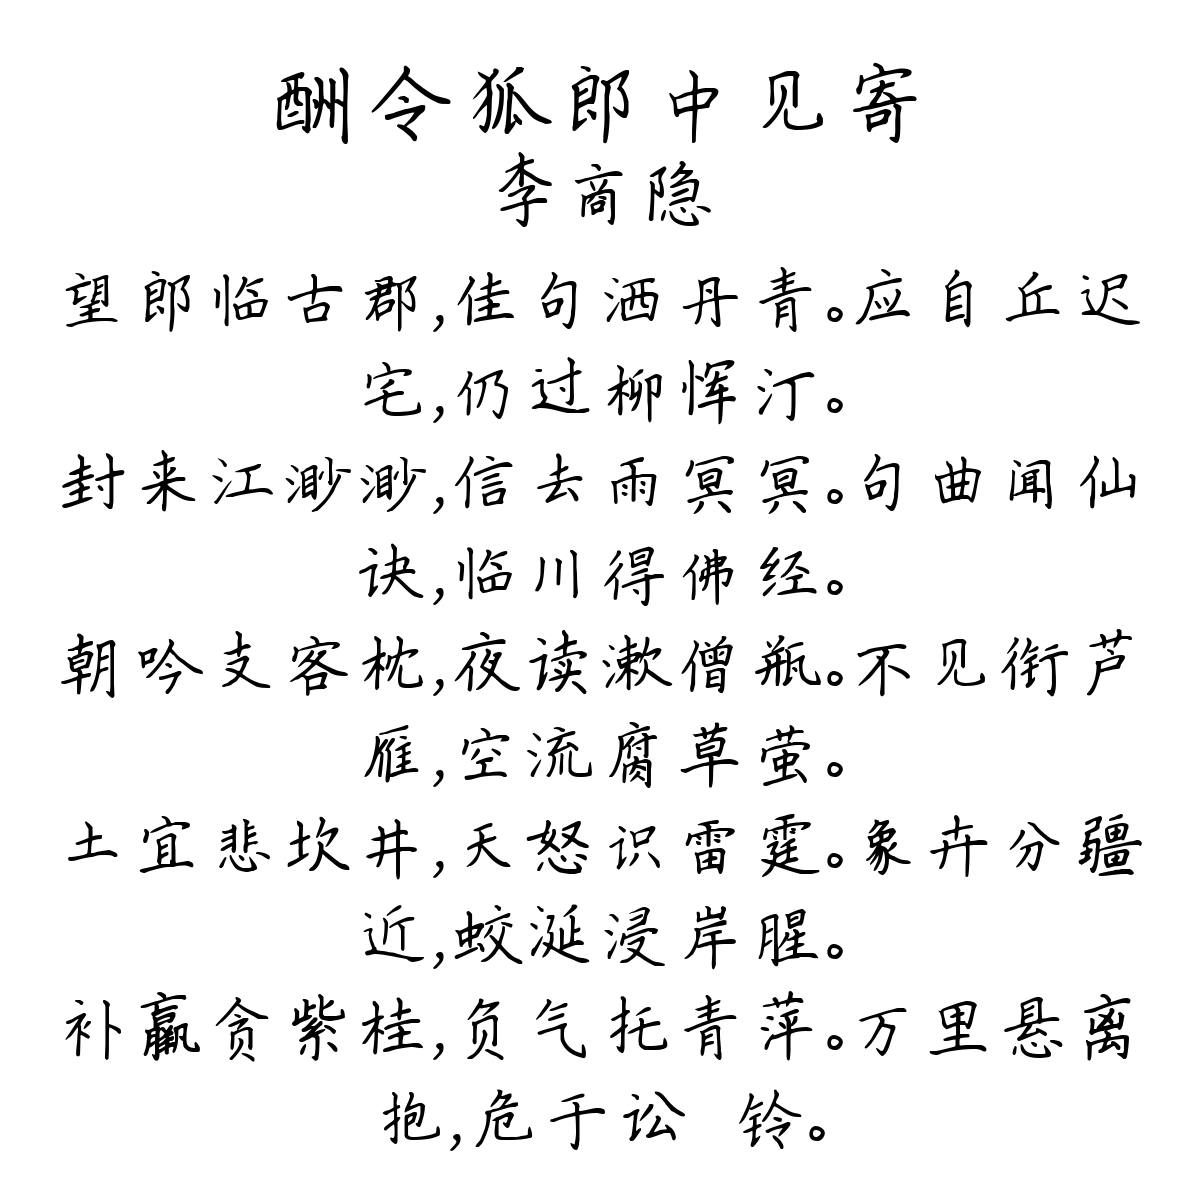 酬令狐郎中见寄
李商隐
望郎临古郡,佳句洒丹青。应自丘迟
宅,仍过柳恽汀。
封来江渺渺,信去雨冥冥。句曲闻仙
诀,临川得佛经。
朝吟支客枕,夜读漱僧瓶。不见衔芦
雁,空流腐草萤。
土宜悲坎井,天怒识雷霆。象卉分疆
近,蛟涎浸岸腥。
补羸贪紫桂,负气托青萍。万里悬离
抱,危于讼 铃。